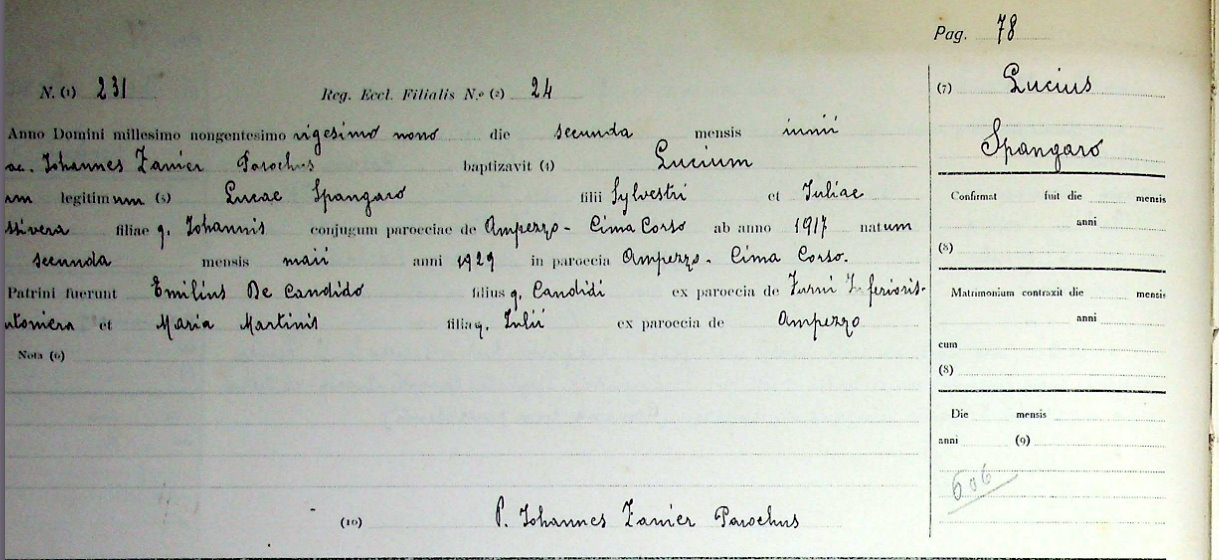 Pag. 78
N. (1) 231 Reg. Eccl. Filialis N.o (2) 24
Anno Domini millesimo nongentesimo vigesimo nono die secunda mensis iunii
ac. Iohannes Zanier Parochus baptizavit (4) Lucium
um legitimum (5) Lucae Spangaro filii Sylvestri et Iuliae
filiae q. Iohannis conjugum paroeciae de Ampezzo - Cima Corso ab anno 1917 natum
secunda mensis maii anni 1929 in paroecia Ampezzo - Cima Corso.
Patrini fuerunt Emilius De Candido filius q. Candidi ex paroecia de Furni Inferioris-
et Maria Martinis filia q. Iulii ex paroecia de Ampezzo
Nota (6)
(10) P. Iohannes Zanier Parochus
(7) Lucius
Spangaro
Confirmat fuit die mensis
anni
(8)
Matrimonium contraxit die mensis
anni
cum
(8)
Die mensis
anni (9)
606